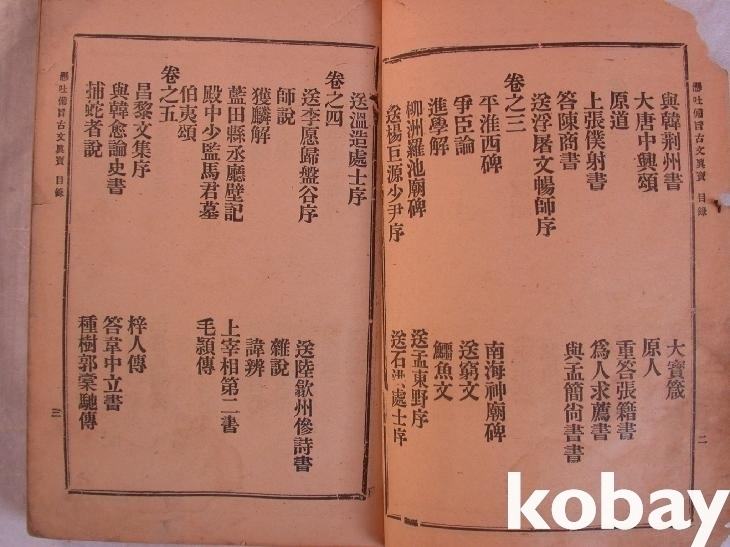 懸吐備旨古文眞寶 目錄 二
與韓荊州書 大寶箴
大唐中興頌 原人
原道 重答張籍書
上張僕射書 爲人求薦書
答陳商書 與孟簡尙書書
送浮屠文暢師序
卷之三
平淮西碑 南海神廟碑
爭臣論 送窮文
進學解 鱷魚文
柳洲羅池廟碑 送孟東野序
送楊巨源少尹序 送石 處士序
送溫造處士序
卷之四
送李愿歸盤谷序 送陸歙州傪詩書
師說 雜說
獲麟解 諱辨
藍田縣丞廳壁記 上宰相第二書
殿中少監馬君墓 毛頴傳
伯夷頌
卷之五
昌黎文集序 梓人傳
與韓愈論史書 答韋中立書
捕蛇者說 種樹郭槖馳傳
懸吐備旨古文眞寶 目錄 三
kobay